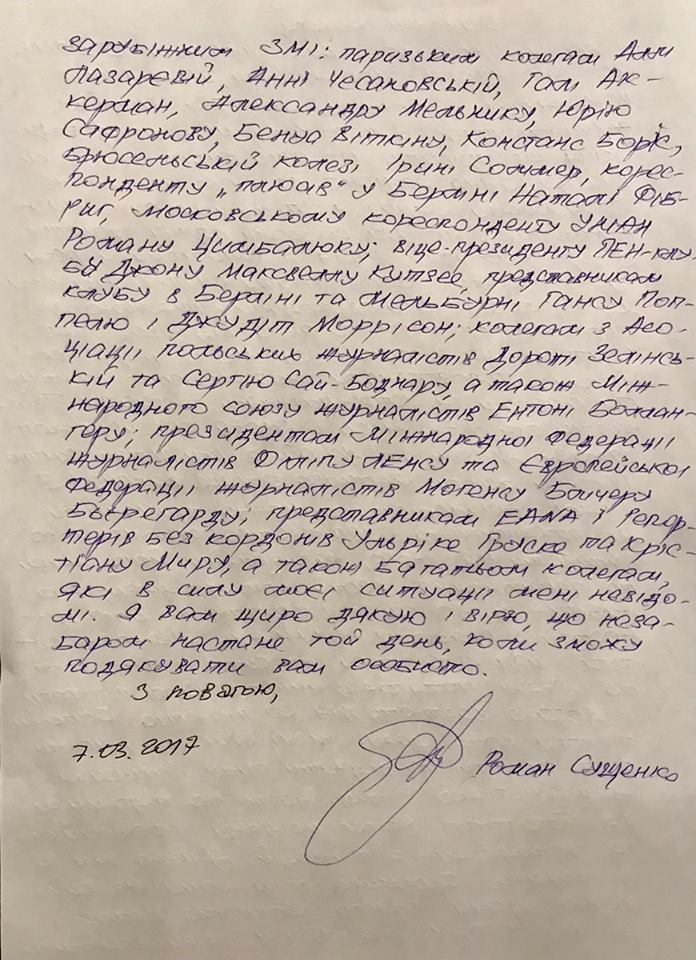 зарубіжним ЗМІ: паризьким колегам Аллі
Лазарєвій, Анні Чесановській, Галі Ак-
керман, Александру Мельнику, Юрію
Сафронову, Бенуа Віткіну, Констанс
брюсельській колезі Ірині Соммер, корес-
понденту „плюсів“ у Берліні Наталі Фіб-
риг, московському кореспонденту УНІАН
Роману Цимбалюку; віце-президенту ПЕН-клу-
бу Джону Максвеллу Кутзее, представникам
клубу в Берліні та Мельбурні Гансу Поп-
пелю і Джудіт Моррісон; колегам з Асо-
ціації польських журналістів Дороті Зелінсь-
кій та Сергію Сай-Боднару, а також Між-
народного союзу журналістів Ентоні Беллан-
геру; президентам Міжнародної Федерації
журналістів Філіпу Ленсу та Європейської
Федерації журналістів Могенсу Блічеру
Бьєрегарду; представникам EANA і Репор-
терів без кордонів Ульріке Груска та Кріс-
тіану Міру, а також багатьом колегам,
які в силу моєї ситуації мені невідо-
мі. Я вам щиро дякую і вірю, що неза-
баром настане той день, коли зможу
подякувати вам особисто.
З повагою,
7.03.2017
Роман Сущенко